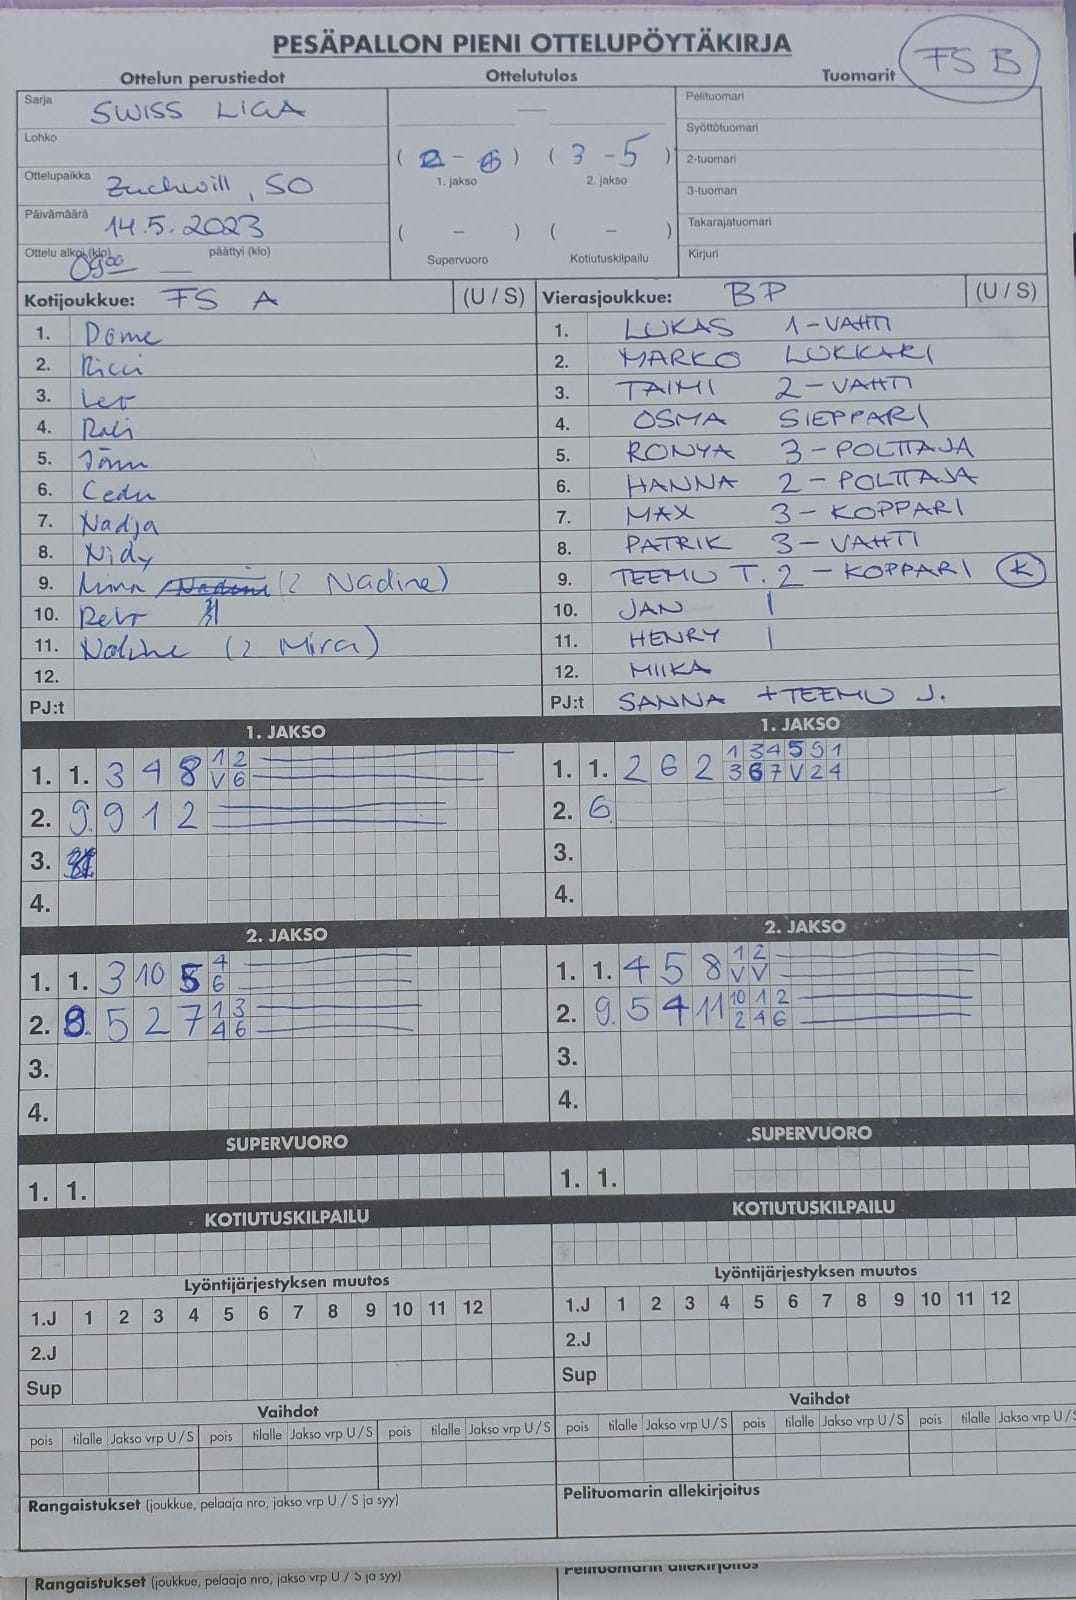 PESÄPALLON PIENI OTTELUPÖYTÄKIRJA
FS B
Ottelun perustiedot Ottelutulos Tuomarit
Sarja SWISS LIGA
Lohko
Ottelupaikka Zuchwill, SO
Päivämäärä 14.5.2023
Ottelu alkoi (klo) 09⁰⁰ päättyi (klo)
—
(2 - 6) (3 - 5)
1. jakso 2. jakso
( - ) ( - )
Supervuoro Kotiutuskilpailu
Pelituomari
Syöttötuomari
2-tuomari
3-tuomari
Takarajatuomari
Kirjuri
Kotijoukkue: FS A (U / S)
1. Dome
2. Ricci
3. Leo
4. Rali
5. Jönu
6. Cedu
7. Nadja
8. Nidy
9. (2 Nadine)
10. Reto
11. Nadine (2 Mira)
12.
PJ:t
Vierasjoukkue: BP (U / S)
1. LUKAS 1-VAHTI
2. MARKO LUKKARI
3. TAIMI 2-VAHTI
4. OSMA SIEPPARI
5. RONYA 3-POLTTAJA
6. HANNA 2-POLTTAJA
7. MAX 3-KOPPARI
8. PATRIK 3-VAHTI
9. TEEMU T. 2-KOPPARI K
10. JAN |
11. HENRY |
12. MIIKA
PJ:t SANNA + TEEMU J.
1. JAKSO
1. 1. 3 4 8 1 2
V 6
2. 9. 9 1 2
3.
4.
1. JAKSO
1. 1. 2 6 2 1 3 4 5 9 1
3 6 7 V 2 4
2. 6.
3.
4.
2. JAKSO
1. 1. 3 10 5 4
6
2. 8. 5 2 7 1 3
4 6
3.
4.
2. JAKSO
1. 1. 4 5 8 1 2
V V
2. 9. 5 4 11 10 1 2
2 4 6
3.
4.
SUPERVUORO
1. 1.
SUPERVUORO
1. 1.
KOTIUTUSKILPAILU
KOTIUTUSKILPAILU
Lyöntijärjestyksen muutos
1.J 1 2 3 4 5 6 7 8 9 10 11 12
2.J
Sup
Lyöntijärjestyksen muutos
1.J 1 2 3 4 5 6 7 8 9 10 11 12
2.J
Sup
Vaihdot
pois tilalle Jakso vrp U / S pois tilalle Jakso vrp U / S pois tilalle Jakso vrp U / S
Vaihdot
pois tilalle Jakso vrp U / S pois tilalle Jakso vrp U / S pois tilalle Jakso vrp U / S
Rangaistukset (joukkue, pelaaja nro, jakso vrp U / S ja syy)
Pelituomarin allekirjoitus
Rangaistukset (joukkue, pelaaja nro, jakso vrp U / S ja syy)
Pelituomarin allekirjoitus